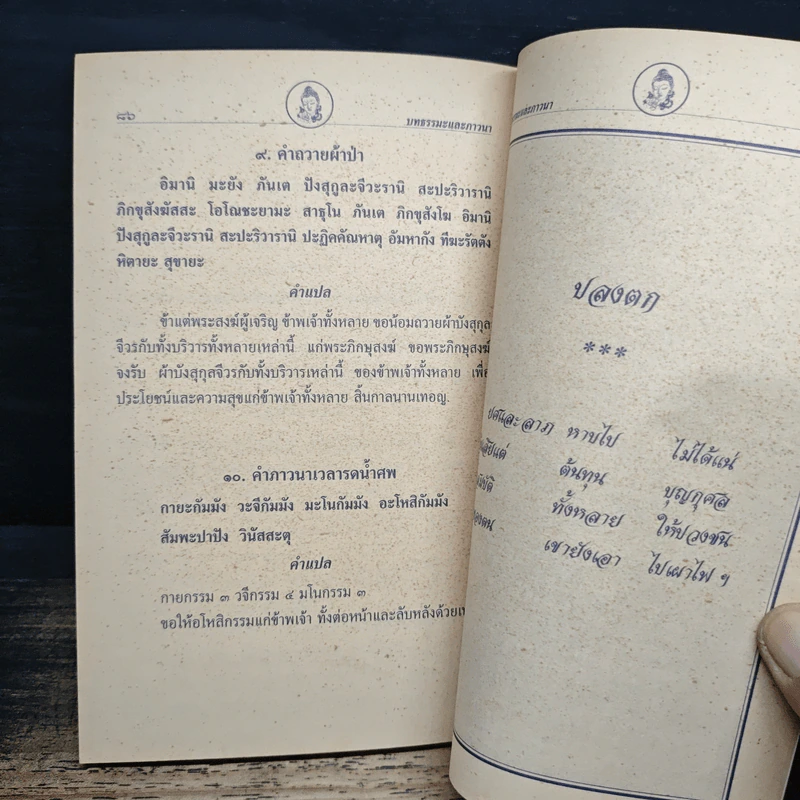 ๘๖
บทธรรมะและภาวนา
๙. คำถวายผ้าป่า
อิมานิ มะยัง ภันเต ปังสุกูละจีวะรานิ สะปะริวารานิ
ภิกขุสังฆัสสะ โอโณชะยามะ สาธุโน ภันเต ภิกขุสังโฆ อิมานิ
ปังสุกูละจีวะรานิ สะปะริวารานิ ปะฏิคคัณหาตุ อัมหากัง ทีฆะรัตตัง
หิตายะ สุขายะ
คำแปล
ข้าแต่พระสงฆ์ผู้เจริญ ข้าพเจ้าทั้งหลาย ขอน้อมถวายผ้าบังสุกุล
จีวรกับทั้งบริวารทั้งหลายเหล่านี้ แก่พระภิกษุสงฆ์ ขอพระภิกษุสงฆ์
จงรับ ผ้าบังสุกุลจีวรกับทั้งบริวารเหล่านี้ ของข้าพเจ้าทั้งหลาย เพื่อ
ประโยชน์และความสุขแก่ข้าพเจ้าทั้งหลาย สิ้นกาลนานเทอญ.
๑๐. คำภาวนาเวลารดน้ำศพ
กายะกัมมัง วะจีกัมมัง มะโนกัมมัง อะโหสิกัมมัง
สัมพะปาปัง วินัสสะตุ
คำแปล
กายกรรม ๓ วจีกรรม ๔ มโนกรรม ๓
ขอให้อโหสิกรรมแก่ข้าพเจ้า ทั้งต่อหน้าและลับหลังด้วย
ปลงตก
***
ยศและลาภ หาบไป ไม่ได้แน่
ต้นทุน บุญกุศล
ทั้งหลาย ให้ปวงชน
เขายังเอา ไปเผาไฟ ฯ